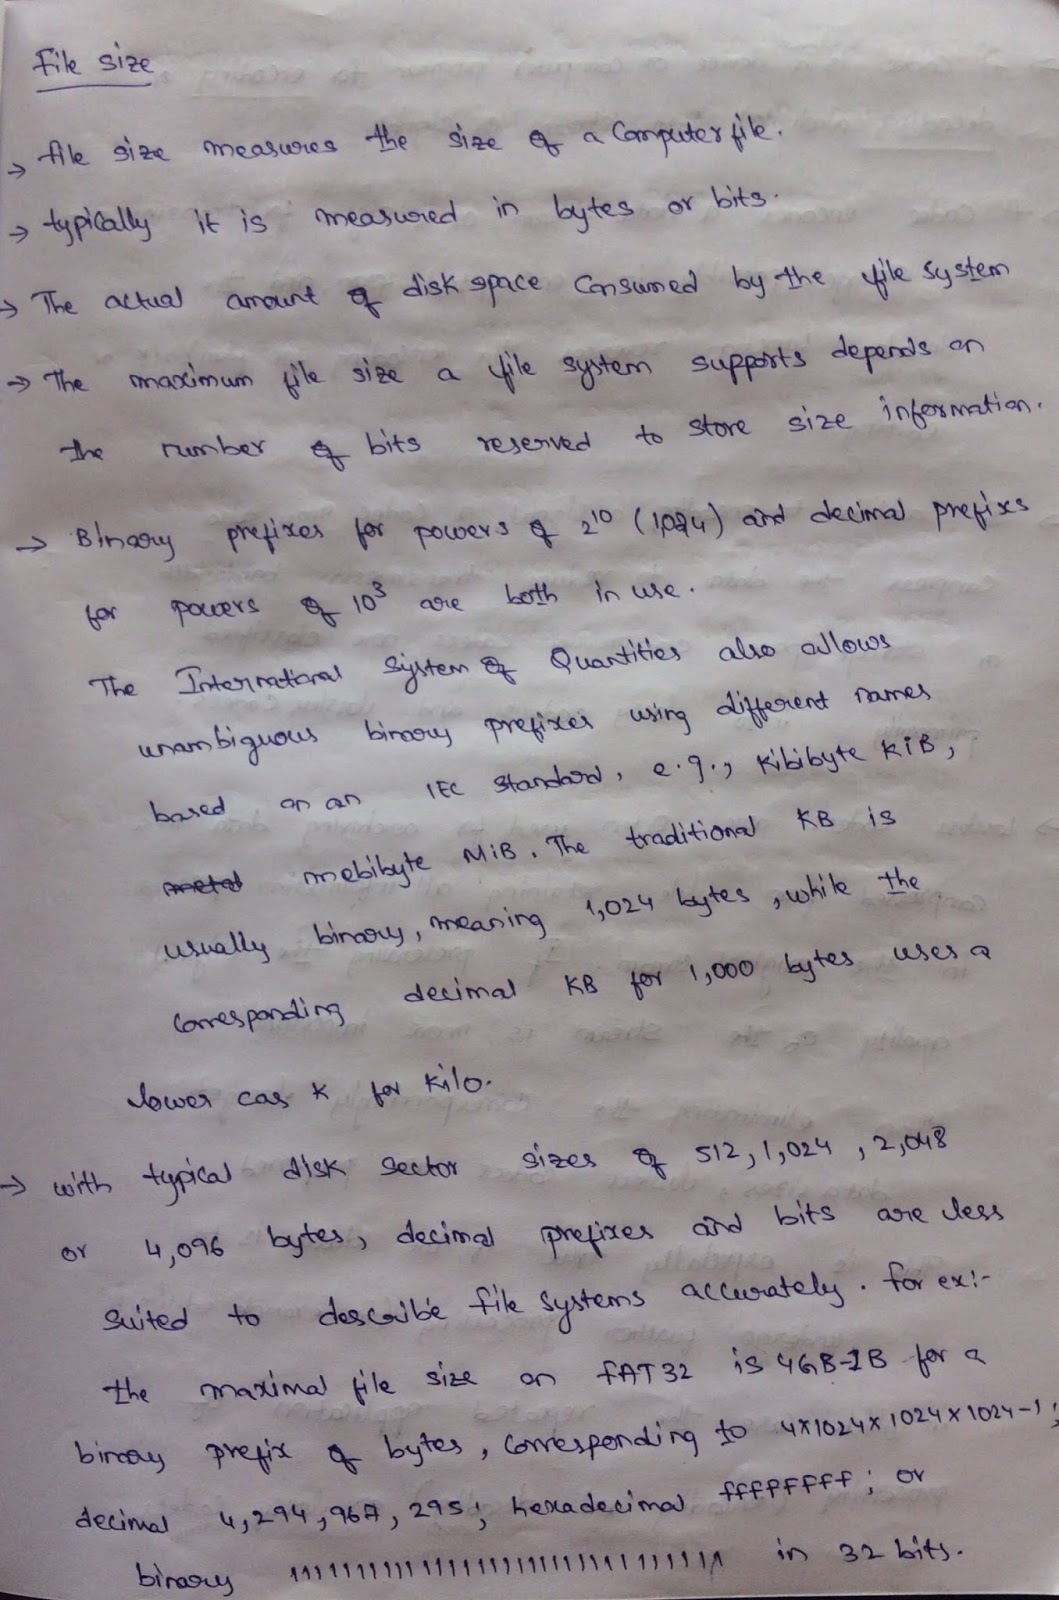 File size
→ file size measures the size of a Computer file.
→ typically it is measured in bytes or bits.
→ The actual amount of disk space consumed by the file system
→ The maximum file size a file system supports depends on
the number of bits reserved to store size information.
→ Binary prefixes for powers of 2¹⁰ (1,024) and decimal prefixs
for powers of 10³ are both in use.
The International System of Quantities also allows
unambiguous binary prefixes using different names
based on an IEC standard, e.g., kibibyte KiB,
mebibyte MiB. The traditional KB is
usually binary, meaning 1,024 bytes, while the
corresponding decimal KB for 1,000 bytes uses a
lower cas K for kilo.
→ with typical disk sector sizes of 512, 1,024, 2,048
or 4,096 bytes, decimal prefixes and bits are less
suited to describe file systems accurately. for ex:-
the maximal file size on FAT32 is 4GB-1B for a
binary prefix of bytes, corresponding to 4x1024x1024x1024-1;
decimal 4,294,967,295; hexadecimal ffffffff; or
binary 11111111111111111111111111111111 in 32 bits.